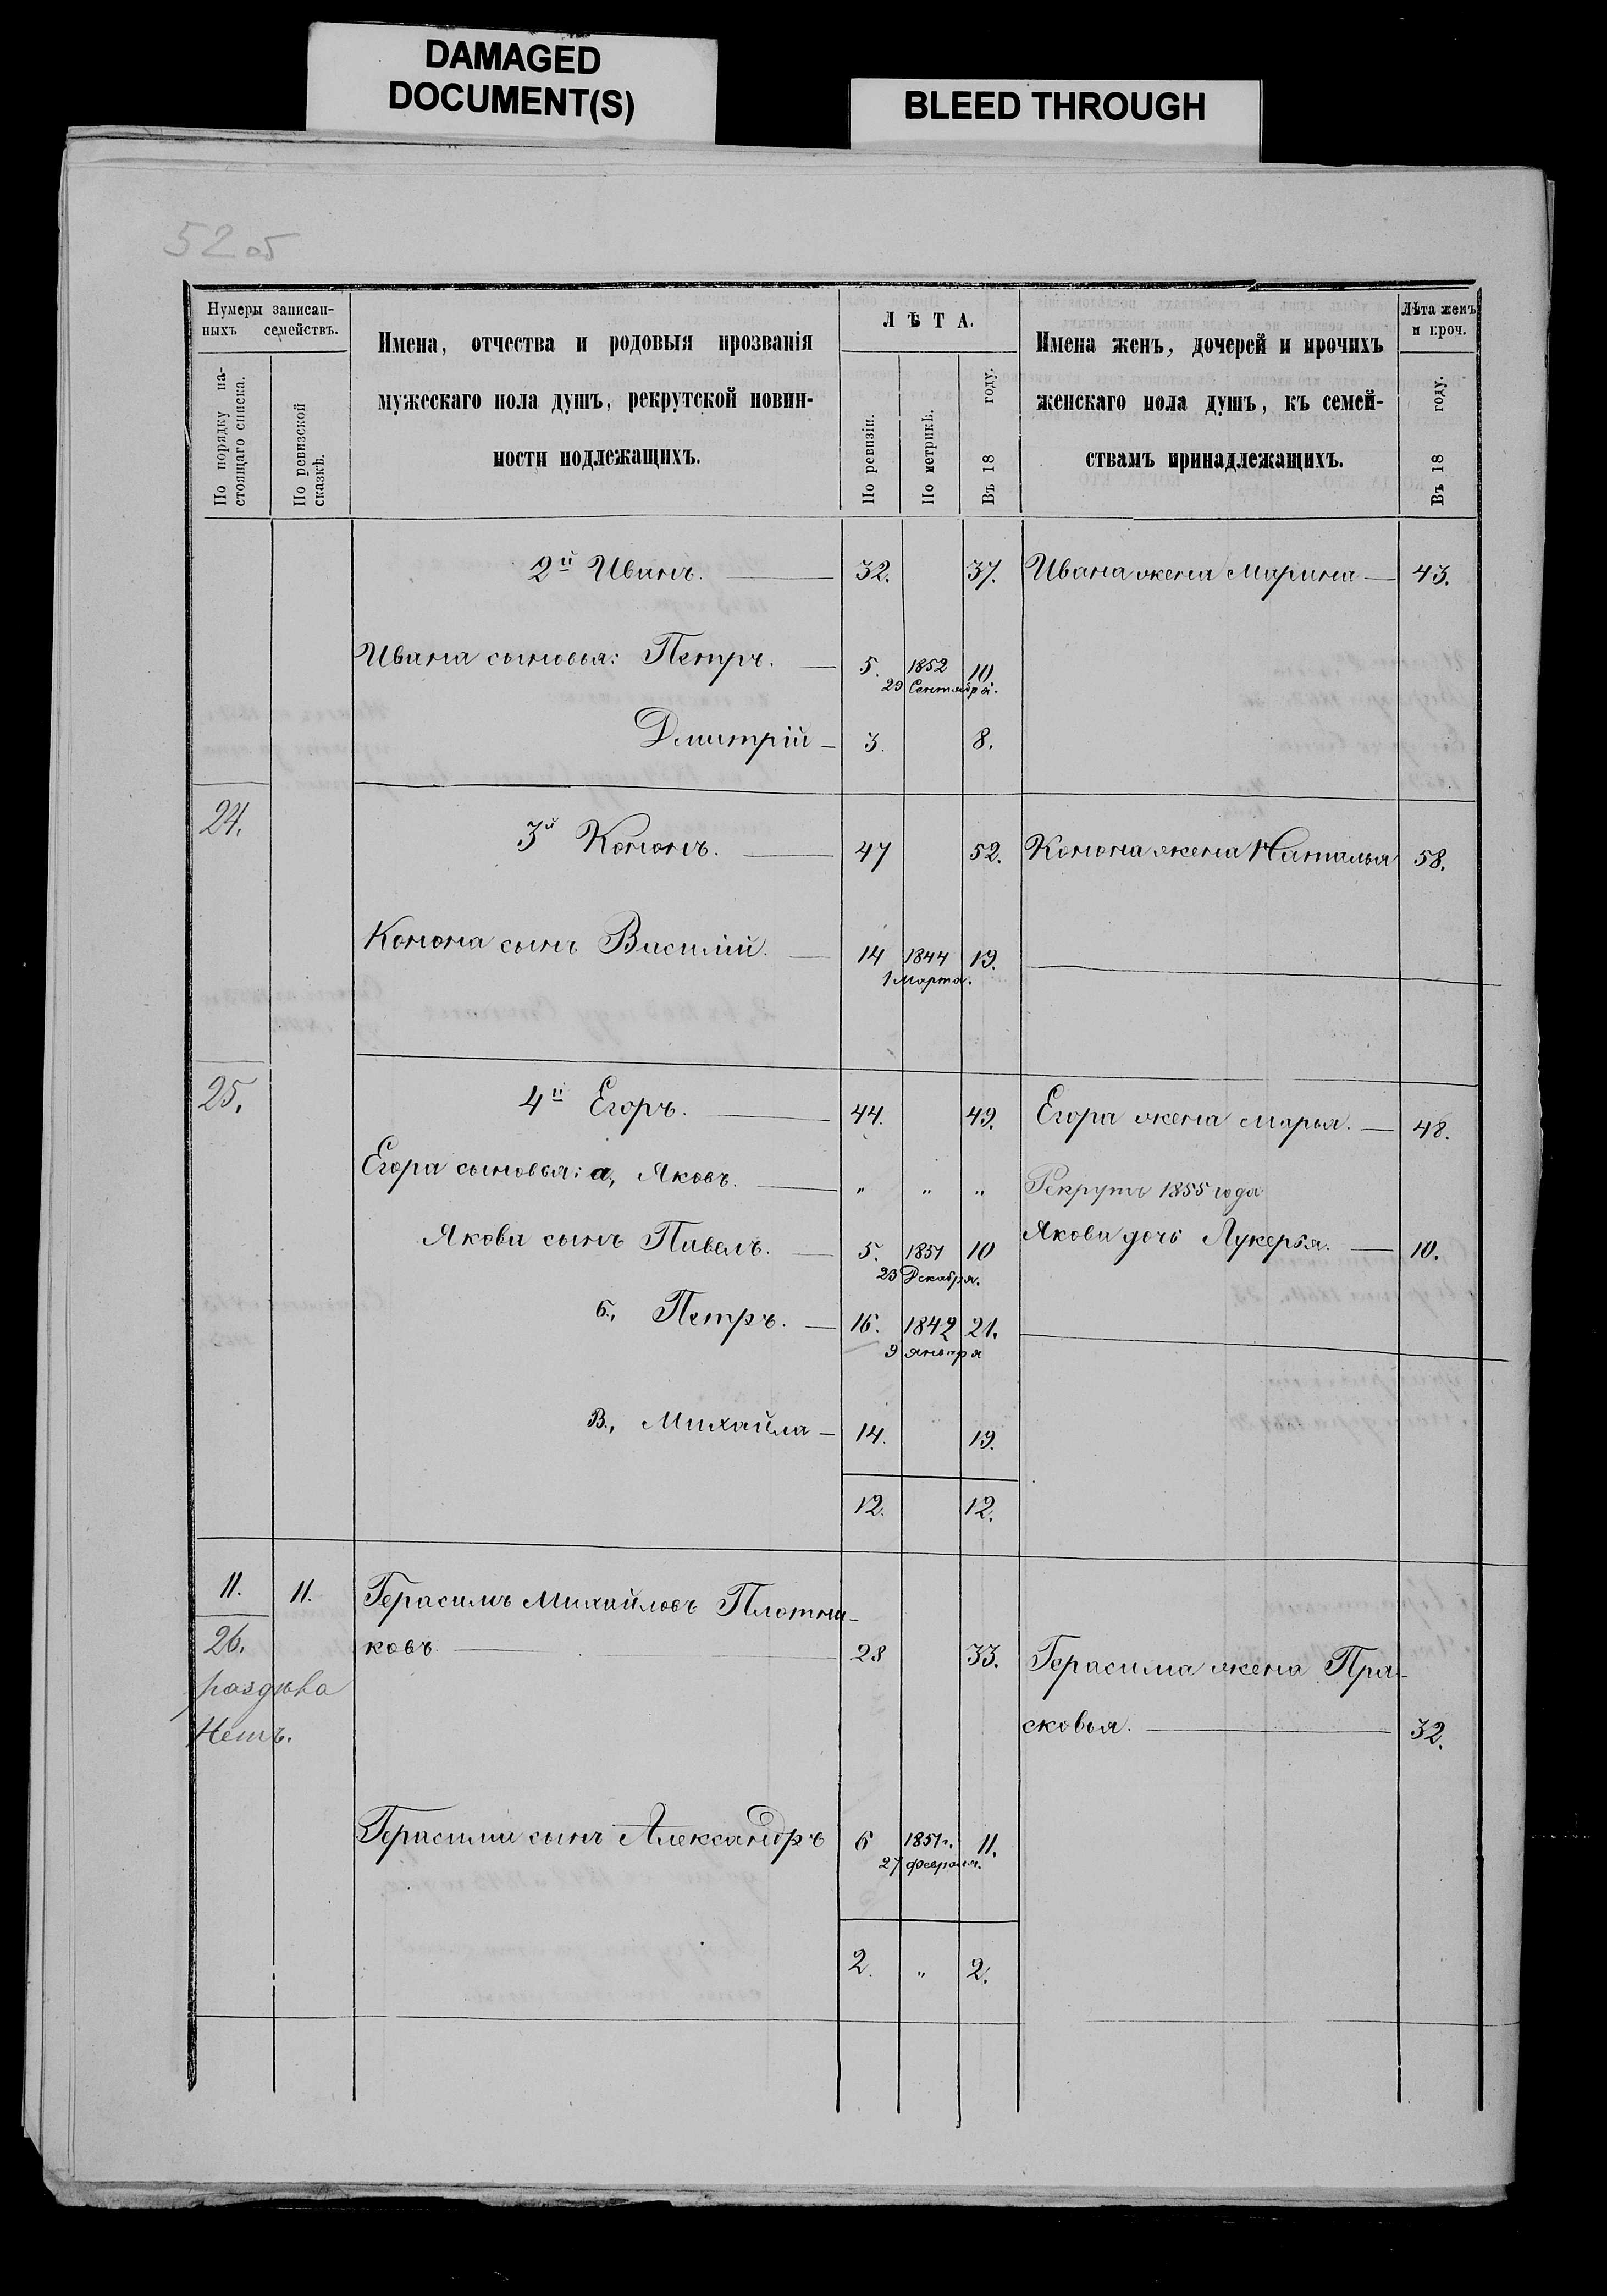 DAMAGED
DOCUMENT(S)
BLEED THROUGH
52 об
Нумеры записан-
ныхъ семействъ.
По порядку на-
стоящаго списка.
По ревизской
сказкѣ.
Имена, отчества и родовыя прозванія
мужескаго пола душъ, рекрутской повин-
ности подлежащихъ.
ЛѢТА.
По ревизіи.
По метрикѣ.
Въ 18 году.
Имена женъ, дочерей и прочихъ
женскаго пола душъ, къ семей-
ствамъ принадлежащихъ.
Лѣта женъ
и проч.
Въ 18 году.
2й Иванъ. 32. 37. Ивана жена Марина 43.
Ивана сыновья: Петръ. 5. 1852 10
29 Сентября.
Дмитрій 3. 8.
24. 3й Кононъ. 47 52. Конона жена Наталья 58.
Конона сынъ Василій. 14 1844 19.
1 Марта.
25. 4й Егоръ. 44. 49. Егора жена Марья. 48.
Егора сыновья: а, Яковъ. " " " Рекрутъ 1855 года
Якова сынъ Павелъ. 5. 1851 10 Якова дочь Лукерья. 10.
23 Декабря.
б., Петръ. 16. 1842 21.
9 Января
В., Михайла 14. 19.
12. 12.
11. 11. Герасимъ Михайловъ Плотни-
26. ковъ 28 33. Герасима жена Пра-
раздѣла
Нетъ. сковья. 32.
Герасима сынъ Александръ 6 1851г. 11.
27 Февраля.
2. " 2.